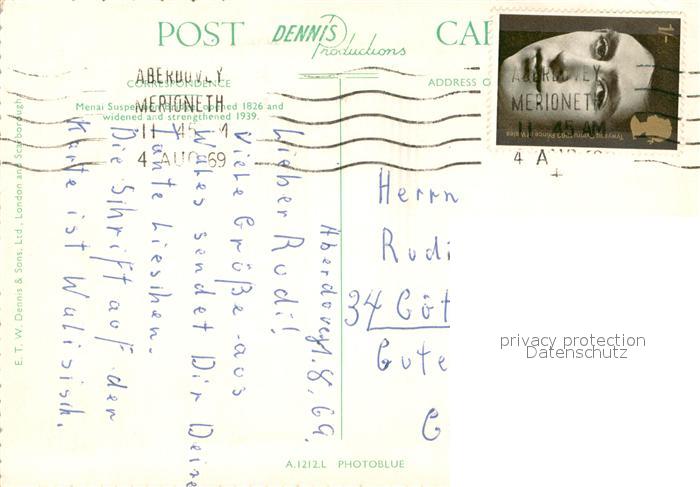 POST CA
DENNIS
Productions
CORRESPONDENCE
ADDRESS O
Menai Suspension opened 1826 and
widened and strengthened 1939.
ABERDOVEY
MERIONETH
11 45 AM
4 AUG 69
ABERDOVEY
MERIONETH
11 45 AM
4 A
1/-
Tywysog Cymru 1969 Prince of Wales
E. T. W. Dennis & Sons, Ltd., London and Scarborough
Aberdovey 1. 8. 69.
Lieber Rudi!
Viele Grüße aus
Wales sendet Dir Deine
Tante Lieschen.
Die Schrift auf der
Karte ist Walisisch.
Herrn
Rudi
34 Göt
Gute
G
privacy protection
Datenschutz
A.1212.L PHOTOBLUE